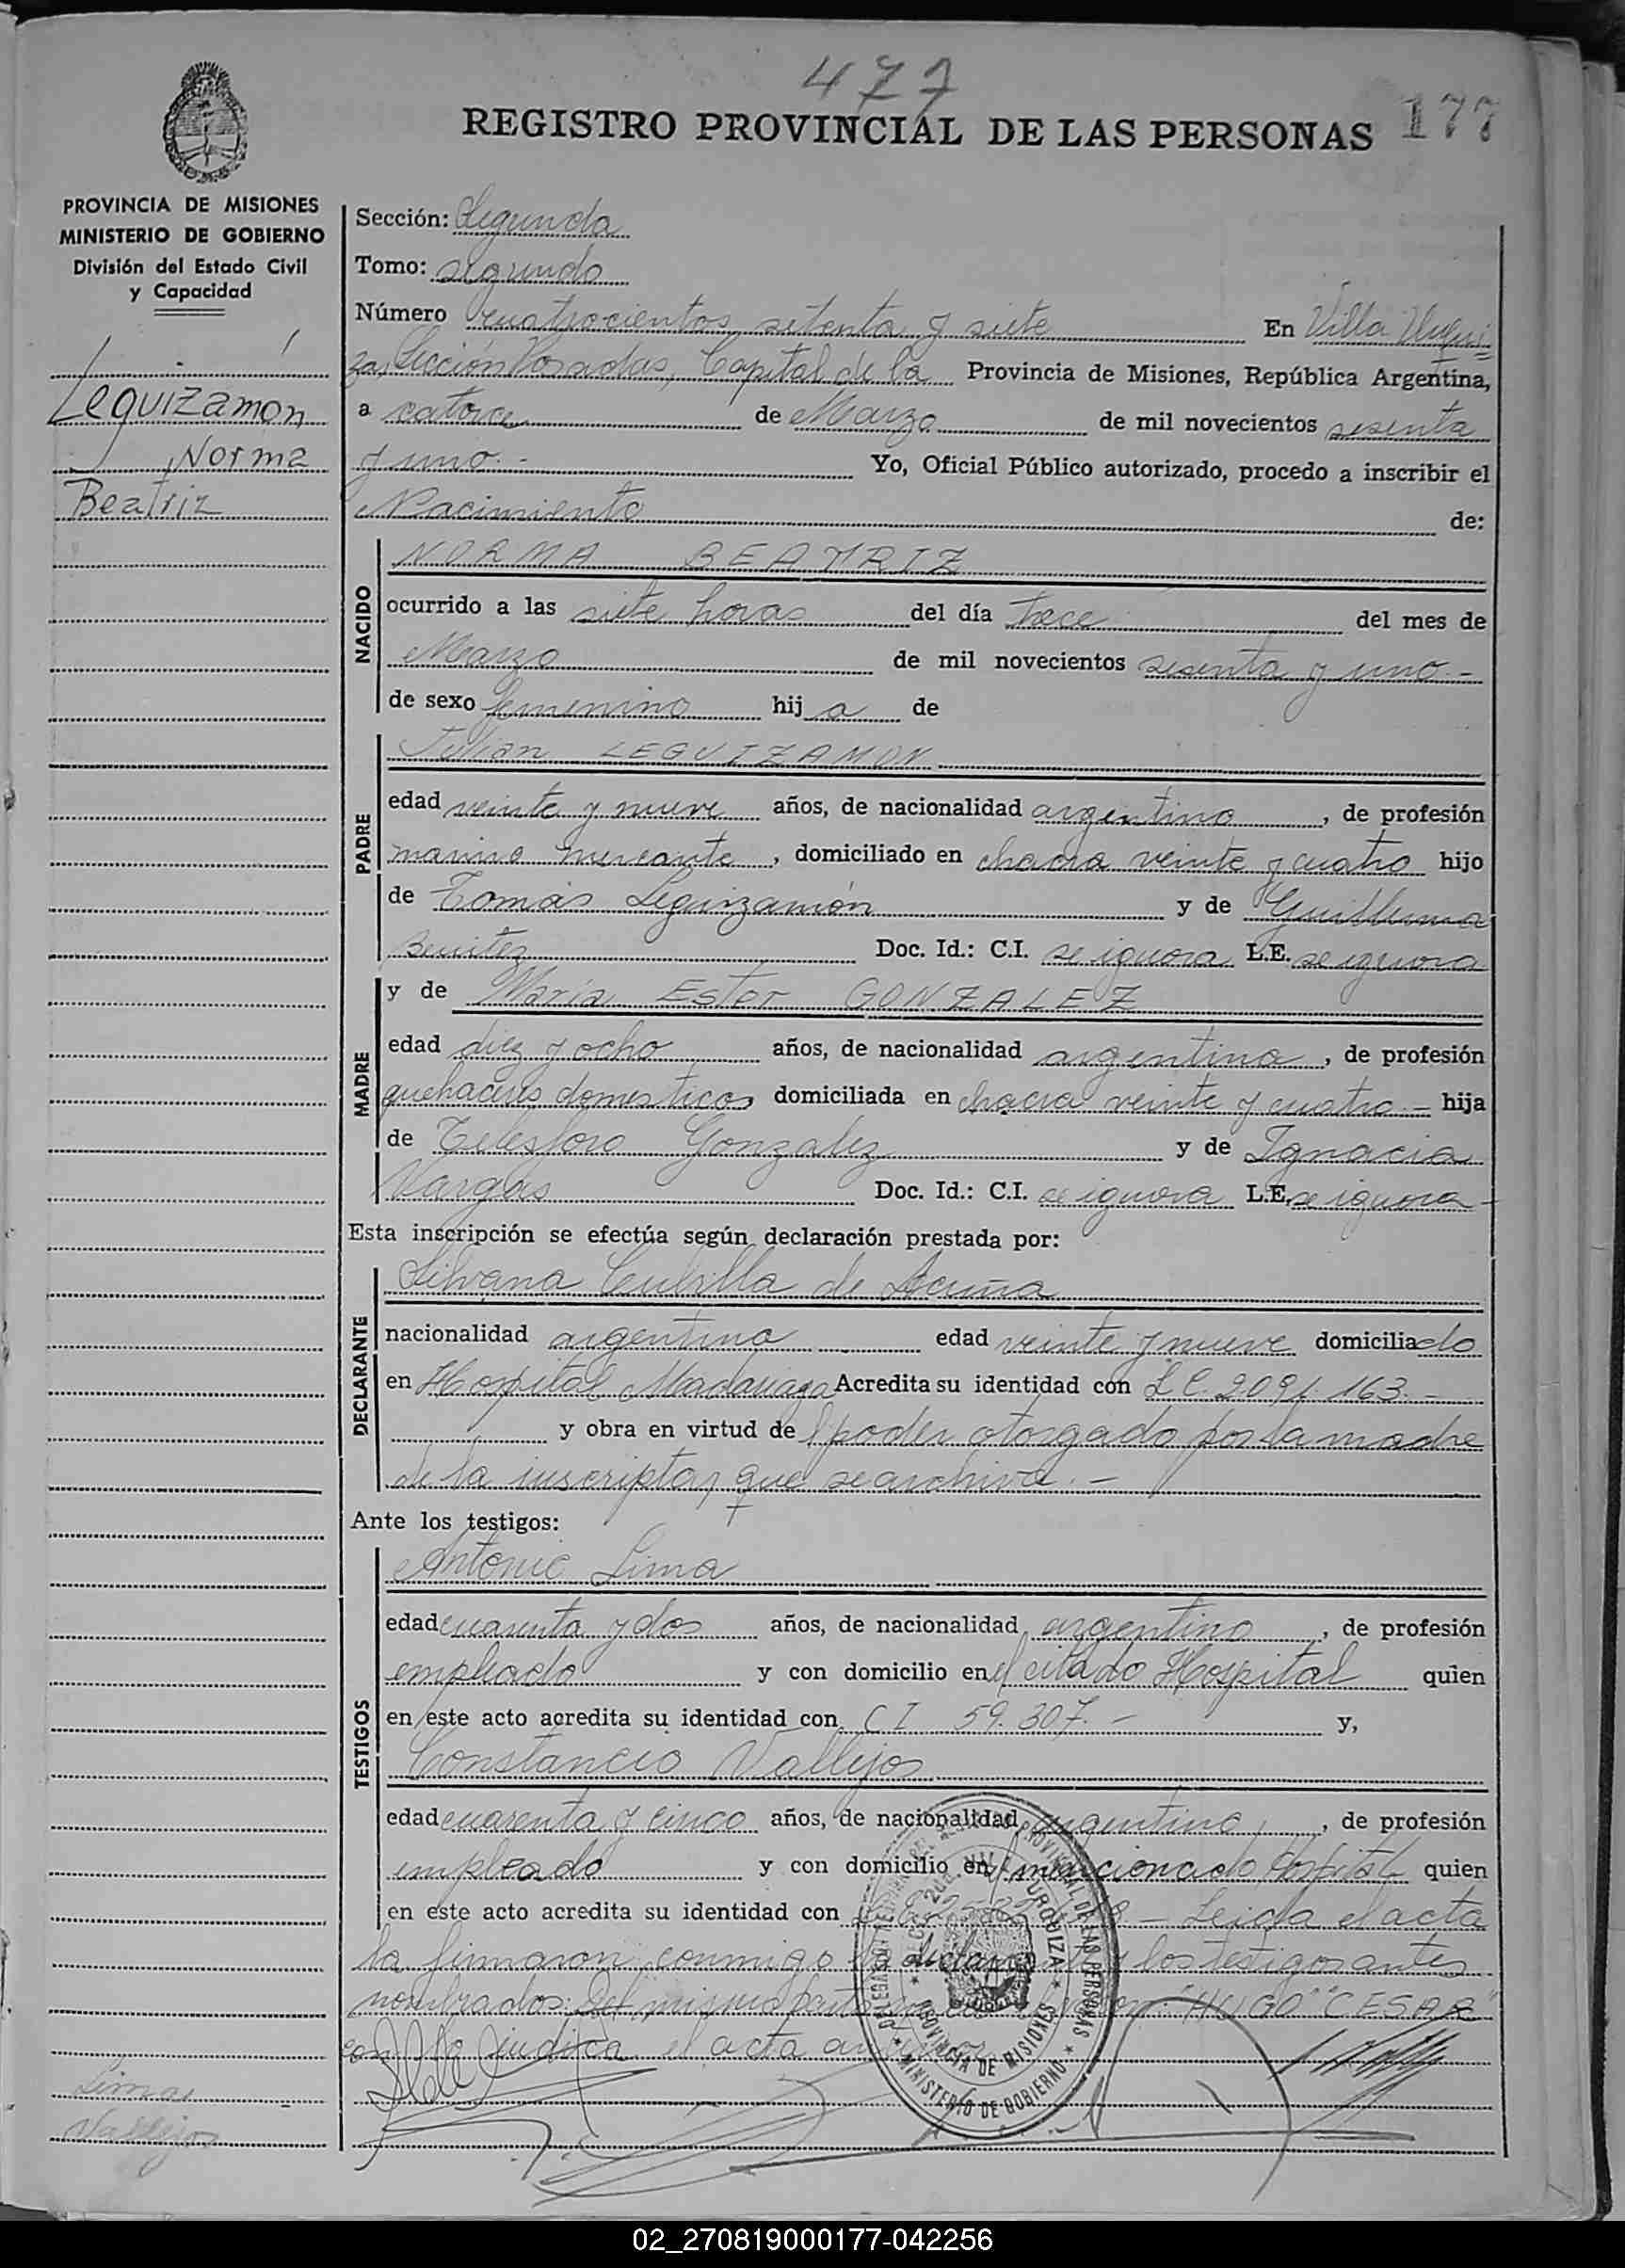 477
REGISTRO PROVINCIAL DE LAS PERSONAS 177
PROVINCIA DE MISIONES
MINISTERIO DE GOBIERNO
División del Estado Civil
y Capacidad
Leguizamon
Norma
Beatriz
Sección: Segunda
Tomo: segundo
Número cuatrocientos setenta y siete En Villa Urqui=
za, Sección Posadas, Capital de la Provincia de Misiones, República Argentina,
a catorce de Marzo de mil novecientos sesenta
y uno.- Yo, Oficial Público autorizado, procedo a inscribir el
Nacimiento de:
NACIDO
NORMA BEATRIZ
ocurrido a las siete horas del día trece del mes de
Marzo de mil novecientos sesenta y uno.-
de sexo femenino hij a de
PADRE
Julian LEGUIZAMON
edad veinte y nueve años, de nacionalidad argentina, de profesión
marino mercante, domiciliado en chacra veinte y cuatro hijo
de Tomás Leguizamón y de Guillerma
Benitez Doc. Id.: C.I. se ignora L.E. se ignora
MADRE
y de María Ester GONZALEZ
edad diez y ocho años, de nacionalidad argentina, de profesión
quehaceres domesticos domiciliada en chacra veinte y cuatro.- hija
de Telesforo Gonzalez y de Ignacia
Vargas Doc. Id.: C.I. se ignora L.E. se ignora-
Esta inscripción se efectúa según declaración prestada por:
DECLARANTE
Silvana Cubilla de Acuña
nacionalidad argentina edad veinte y nueve domiciliado
en Hospital Madariaga Acredita su identidad con L C 2091.163.-
y obra en virtud del poder otorgado por la madre
de la inscripta, que se archiva.-
Ante los testigos:
TESTIGOS
Antonio Lima
edad cuarenta y dos años, de nacionalidad argentino, de profesión
empleado y con domicilio en el citado Hospital quien
en este acto acredita su identidad con C I 59.307.- y,
Constancio Vallejos
edad cuarenta y cinco años, de nacionalidad argentino, de profesión
empleado y con domicilio en el mencionado Hospital quien
en este acto acredita su identidad con - Leida el acta
la firmaron conmigo la y los testigos antes
nombrados. Del mismo parto "HUGO CESAR"
el acta
DELEGACION PROVINCIAL DE LAS PERSONAS
URQUIZA
PROVINCIA DE MISIONES
MINISTERIO DE GOBIERNO
Lima
Vallejos
02_270819000177-042256